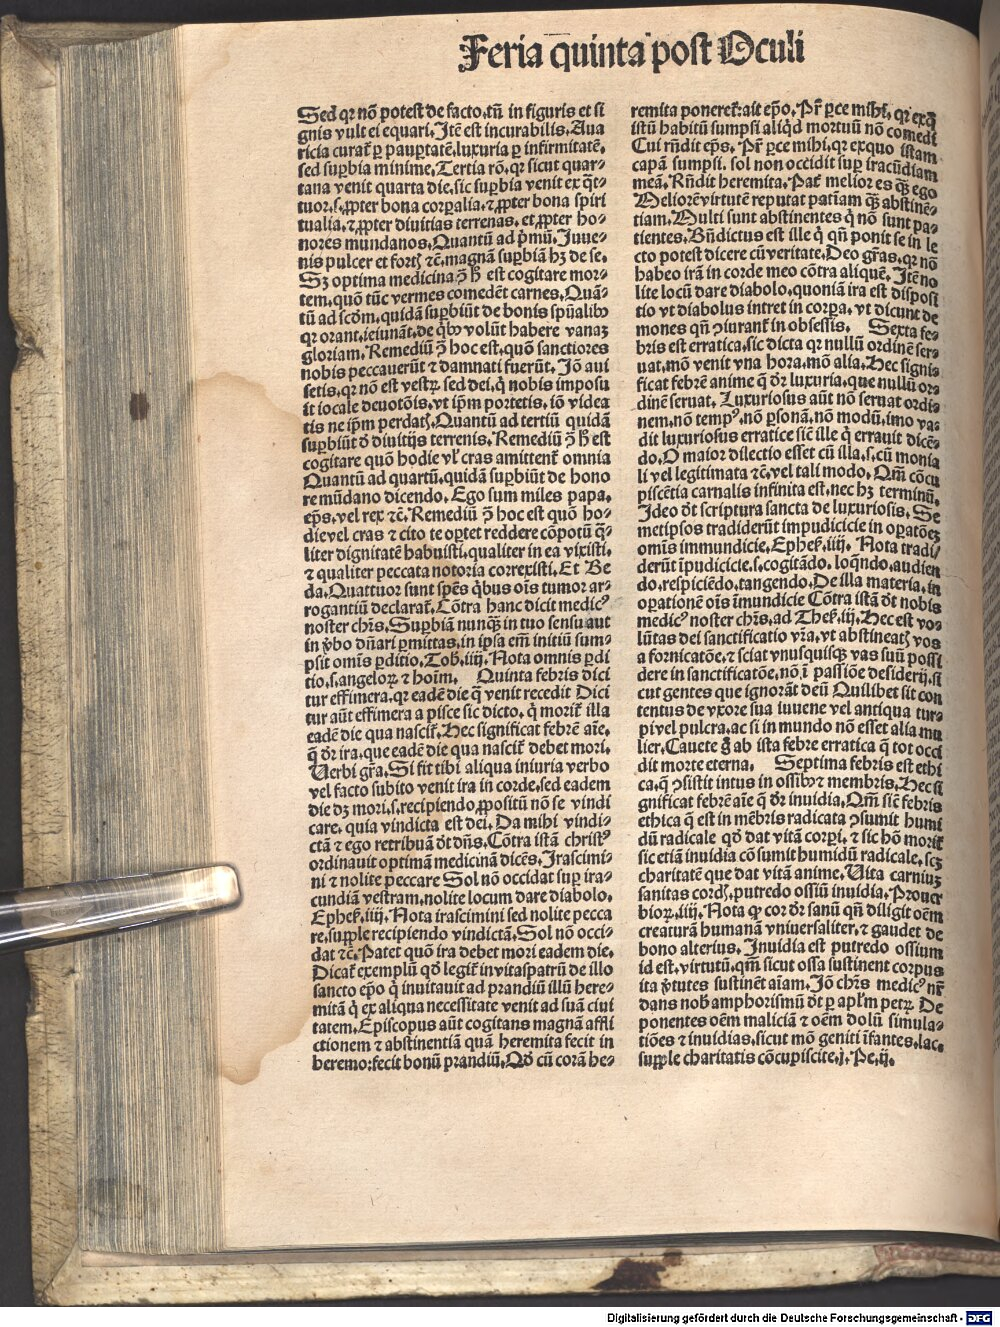 Feria quinta post Oculi
Sed qr nō potest de facto, tñ in figuris et si
gnis vult ei equari. Itē est incurabilis. Aua
ricia curat̄ ꝑ paupertatē, luxuria ꝑ infirmitatē,
sed suꝑbia minime. Tertia rō, qr sicut quar⸗
tana venit quarta die, sic suꝑbia venit ex q̄t⸗
tuor. s. ꝓpter bona corꝑalia, ⁊ ꝓpter bona spiri
tualia, ⁊ ꝓpter diuitias terrenas, et ꝓpter ho⸗
nores mundanos. Quantū ad pͥmū. Iuue⸗
nis pulcer et fortꝭ ⁊c̄. magnā suꝑbiā hꝫ de se.
Sꝫ optima medicina ꝯ̄ h̄ est cogitare mor⸗
tem, quō tūc vermes comedēt carnes. Quā⸗
tū ad scḋm, quidā suꝑbiūt de bonis spūalibꝰ
qr orant, ieiunāt, de qͥbꝰ volūt habere vanaꝫ
gloriam. Remediū ꝯ̄ hoc est, quō sanctiores
nobis peccauerūt ⁊ damnati fuerūt. Iō aui
setis, qr nō est vestrꝝ sed dei, qͥ nobis imposu
it iocale deuotōis, vt ip̄m portetis, iō videa
tis ne ip̄m perdatꝭ. Quantū ad tertiū quidā
suꝑbiūt ḋ diuitijs terrenis. Remediū ꝯ̄ h̄ est
cogitare quō hodie vl̕ cras amittent̄ omnia
Quantū ad quartū, quidā suꝑbiūt de hono
re mūdano dicendo. Ego sum miles papa,
ep̄s, vel rex ⁊c̄. Remediū ꝯ̄ hoc est quō ho⸗
die vel cras ⁊ cito te oꝑtet reddere cōpotū q̄⸗
liter dignitatē habuisti, qualiter in ea vixisti,
⁊ qualiter peccata notoria correxisti. Et Be
da. Quattuor sunt sp̄es qͥbus oīs tumor ar⸗
rogantiū declarat̄. Cōtra hanc dicit medicꝰ
noster chr̄s. Suꝑbiā nunqꝫ in tuo sensu aut
in v̓bo dn̄ari ꝑmittas, in ipsa em̄ initiū sum⸗
psit omīs ꝑditio, Tob̕. iiij. Nota omnis ꝑdi
tio, s. angeloꝝ ⁊ hoīm. Quinta febris dici
tur effimera, qr eadē die q̄ venit recedit Dici
tur aūt effimera a pisce sic dicto, qͥ morit̄ illa
eadē die qua nascit̄. Hec significat febrē aīe,
q̄ dr̄ ira, que eadē die qua nascit̄ debet mori.
Verbi gr̄a. Si fit tibi aliqua iniuria verbo
vel facto subito venit ira in corde, sed eadem
die dꝫ mori. s. recipiendo ꝓpositū nō se vindi
care, quia vindicta est dei. Da mihi vindi⸗
ctā ⁊ ego retribuā dt̄ dn̄s. Cōtra istā christꝰ
ordinauit optimā medicinā dicēs. Irascimi⸗
ni ⁊ nolite peccare Sol nō occidat suꝑ ira⸗
cundiam vestram, nolite locum dare diabolo.
Ephes̄. iiij. Nota irascimini sed nolite pecca
re, supple recipiendo vindictā. Sol nō occi⸗
dat ⁊c̄. Patet quō ira debet mori eadem die.
Dicat̄ exemplū qḋ legit̄ in vitaspatrū de illo
sancto ep̄o qͥ inuitauit ad prandiū illū here⸗
mitā qͥ ex aliqua necessitate venit ad suā ciui
tatem. Episcopus aūt cogitans magnā affli
ctionem ⁊ abstinentiā quā heremita fecit in
heremo: fecit bonū prandiū. Qḋ cū corā he⸗
remita poneret̄: ait ep̄o. Pr̄ ꝑce mihi, qr exq̊
istū habitū sumpsi aliqͥd mortuū nō comedi
Cui rn̄dit ep̄s. Pr̄ ꝑce mihi, qr exquo istam
capā sumpsi. sol non occidit suꝑ iracūdiam
meā. Rn̄dit heremita. Pat̄ melior es qꝫ̄ ego
Meliorē virtutē reputat patīam qꝫ̄ abstinē⸗
tiam. Multi sunt abstinentes qͥ nō sunt pa⸗
tientes. Bn̄dictus est ille qͥ qn̄ ponit se in le
cto potest dicere cū veritate. Deo gr̄as, qr nō
habeo irā in corde meo cōtra aliquē. Itē no
lite locū dare diabolo, quoniā ira est disposi
tio vt diabolus intret in corꝑa, vt dicunt de
mones qn̄ ꝯiurant̄ in obsessis. Sexta fe⸗
bris est erratica, sic dicta qr nullū ordinē ser⸗
uat, mō venit vna hora, mō alia. Hec signi⸗
ficat febrē anime q̄ dr̄ luxuria, que nullū or⸗
dinē seruat. Luxuriosus aūt nō seruat ordi⸗
nem, nō tempꝰ, nō ꝑsonā, nō modū, imo va⸗
dit luxuriosus erratice sic̄ ille qͥ errauit dicē⸗
do. O maior dilectio esset cū illa, s. cū monia
li vel legitimata ⁊c̄. vel tali modo. Qm̄ cōcu
piscētia carnalis infinita est, nec hꝫ terminū.
Ideo dt̄ scriptura sancta de luxuriosis. Se
metipsos tradiderūt impudicicie in oꝑatōeꝫ
omīs immundicie. Ephes̄. iiij. Nota tradi⸗
derūt īpudicicie. s. cogitādo. loqn̄do, audien
do, respiciēdo, tangendo. De illa materia, in
oꝑationē oīs īmundicie Cōtra istā dt̄ nobis
medicꝰ noster chr̄s, ad Thes̄. iij. Hec est vo⸗
lūtas dei sanctificatio vr̄a, vt abstineatꝭ vos
a fornicatōe, ⁊ sciat vnusquisqꝫ vas suū possi
dere in sanctificatōe, nō ī passiōe desiderij, si
cut gentes que ignorāt deū Quilibet sit con
tentus de vxore sua iuuene vel antiqua tur⸗
pi vel pulcra, ac si in mundo nō esset alia mu
lier. Cauete g̊ ab ista febre erratica q̄ tot occi
dit morte eterna. Septima febris est ethi
ca, q̄ ꝯsistit intus in ossibꝰ ⁊ membris. Hec si
gnificat febrē aīe q̄ dr̄ inuidia. Qm̄ sic̄ febris
ethica q̄ est in mēbris radicata ꝯsumit humi
dū radicale qḋ dat vitā corꝑi, ⁊ sic hō morit̄
sic etiā inuidia cōsumit humidū radicale, scꝫ
charitatē que dat vitā anime. Vita carniuꝫ
sanitas cordꝭ, putredo ossiū inuidia. Prouer
bioꝝ. iiij. Nota qꝙ cor dr̄ sanū qn̄ diligit oēm
creaturā humanā vniuersaliter, ⁊ gaudet de
bono alterius. Inuidia est putredo ossium
id est, virtutū, qm̄ sicut ossa sustinent corpus
ita v̓tutes sustinēt aīam. Iō chr̄s medicꝰ nr̄
dans nob̕ amphorismū dt̄ ꝑ apl̄m petrꝝ. De
ponentes oēm maliciā ⁊ oēm dolū simula⸗
tiōes ⁊ inuidias, sicut mō geniti īfantes, lac,
supple charitatis cōcupiscite. j. Pe. ij.
Digitalisierung gefördert durch die Deutsche Forschungsgemeinschaft - DFG